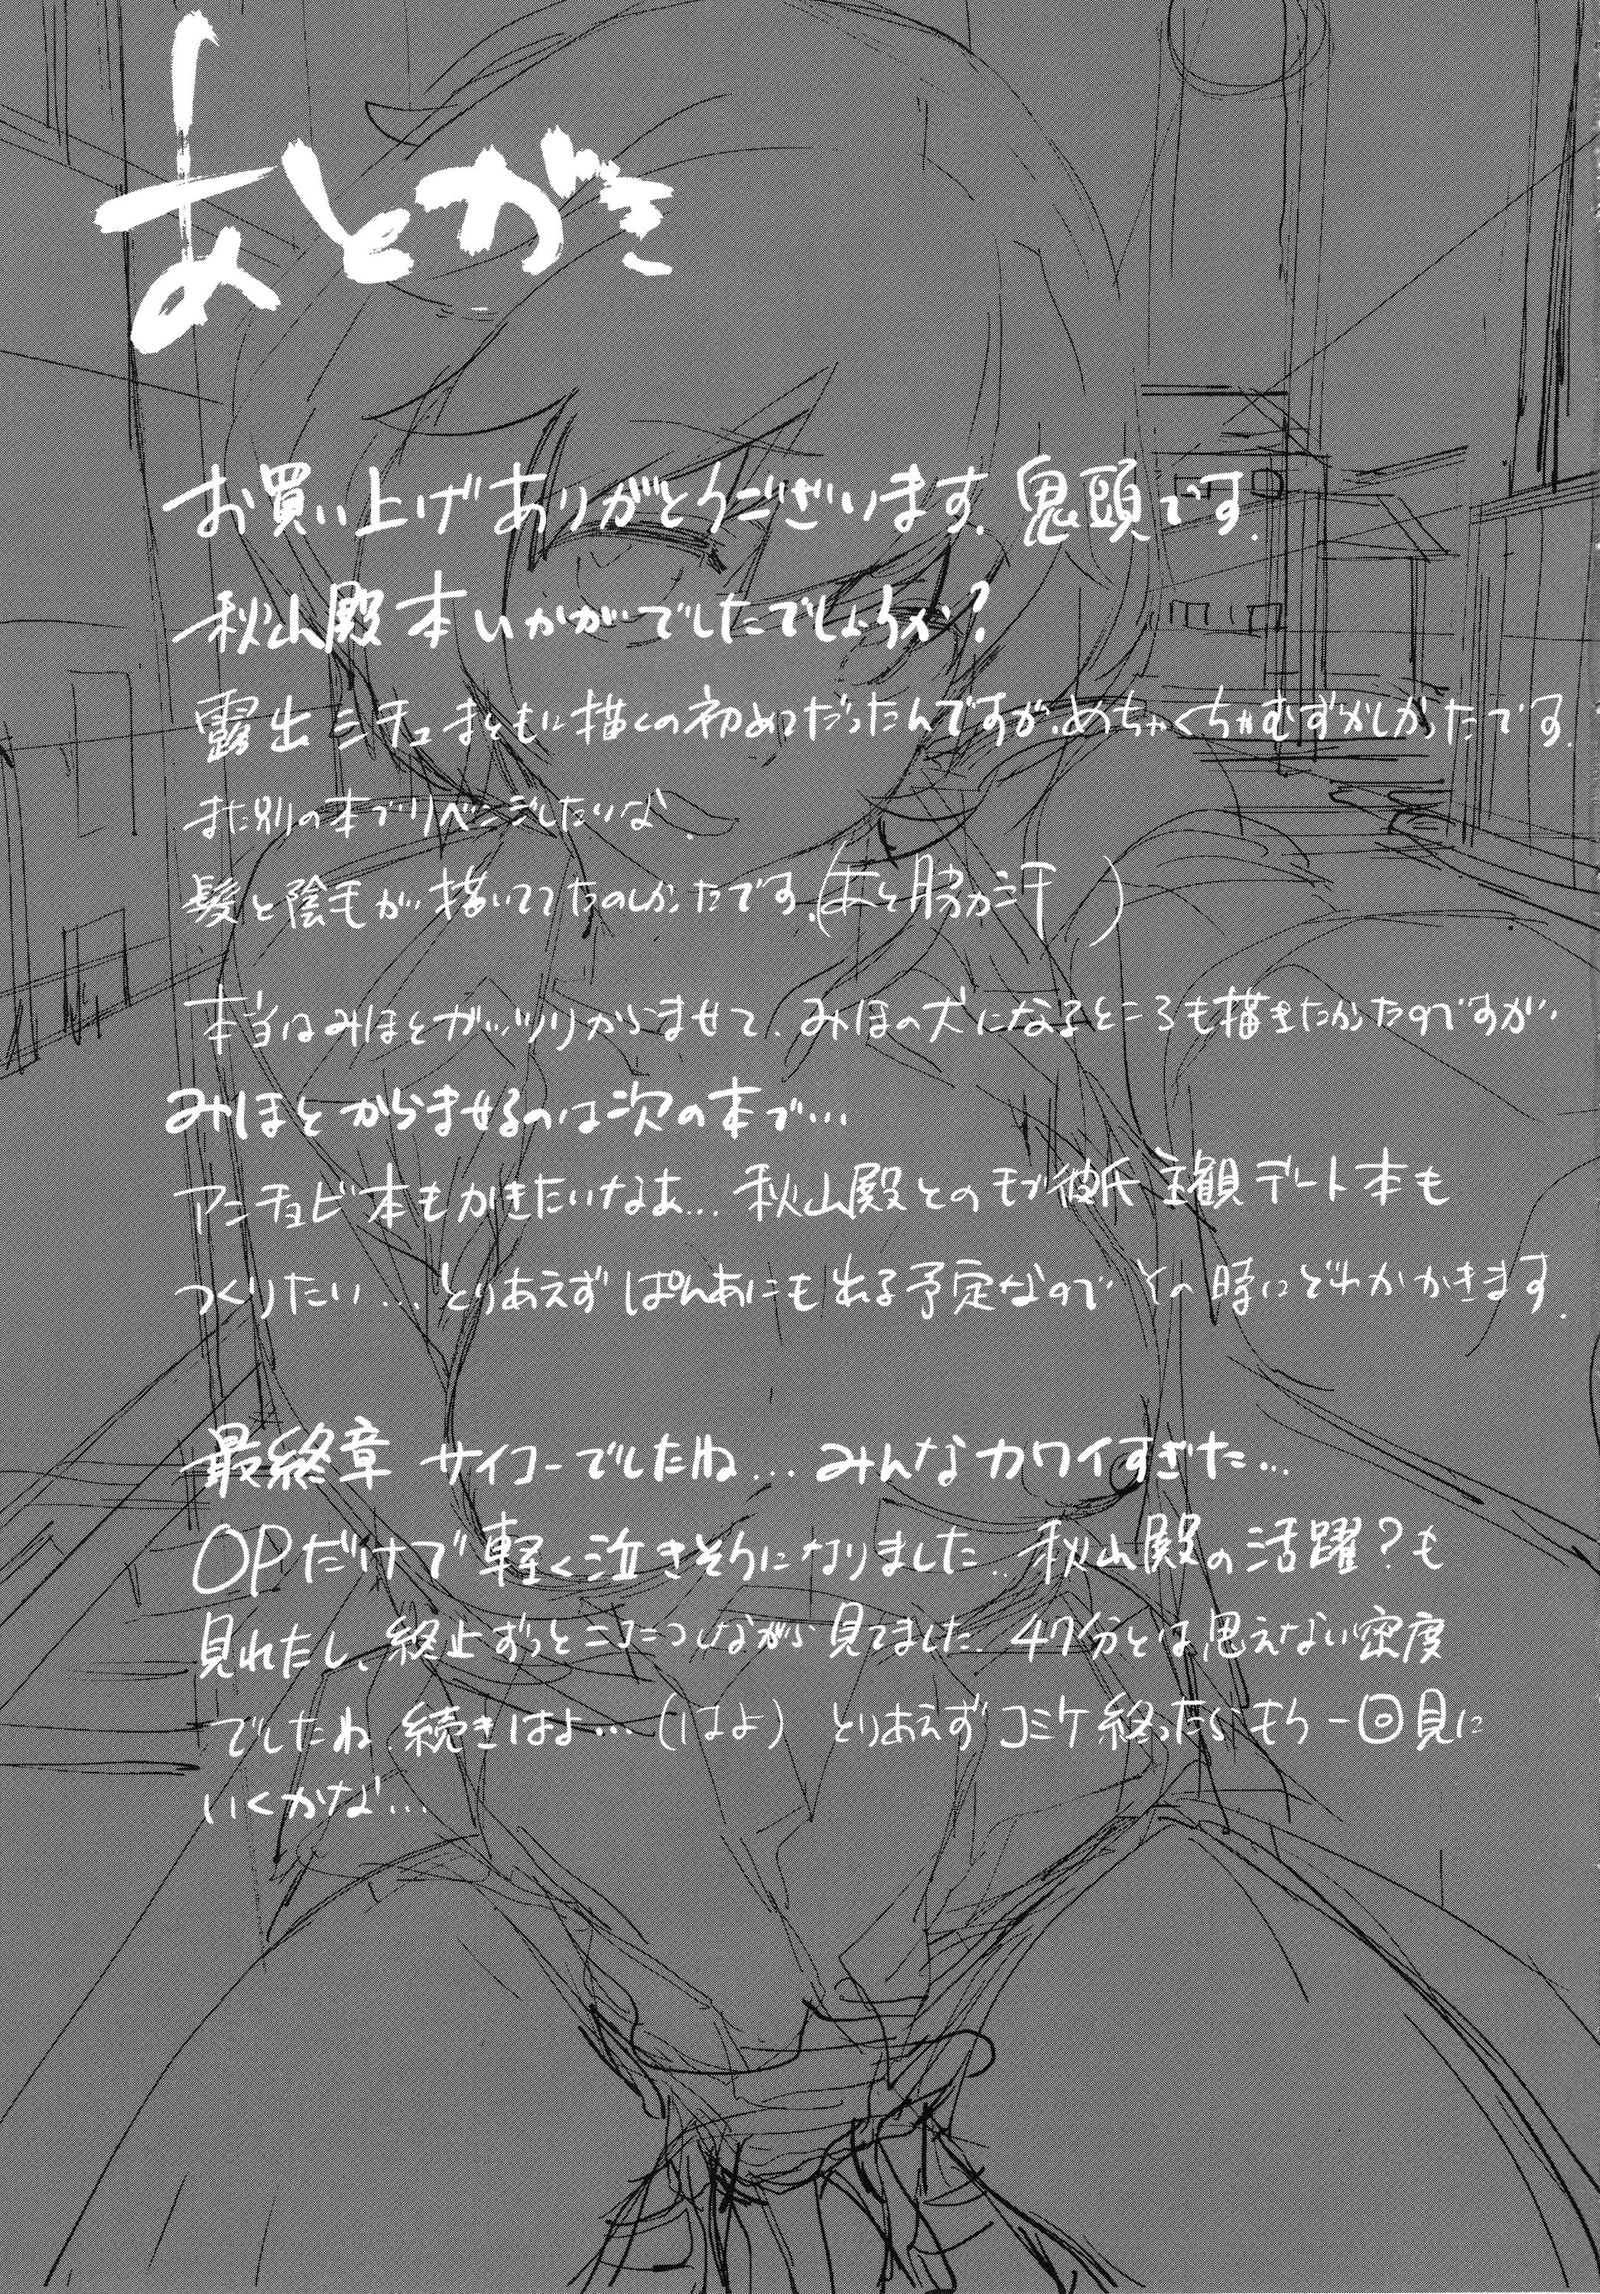 あとがき
お買い上げありがとうございます。鬼頭です。
秋山殿本いかがでしたでしょうか？
露出シチュまともに描くの初めてだったんですが、めちゃくちゃむずかしかったです。
また別の本でリベンジしたいな。
髪と陰毛が描いてて たのしかったです。（あと脇汗）
本当はみほとガッツリからませて、みほの犬になるところも描きたかったのですが、
みほとからませるのは次の本で…
アンチョビ本もかきたいなぁ… 秋山殿とのモブ彼氏主観デート本も
つくりたい… とりあえずぱんあにも出る予定なのでその時にどれかかきます。
最終章 サイコーでしたね… みんなカワイすぎた…
OPだけで軽く泣きそうになりました… 秋山殿の活躍？も
見れたし、終止ずっとニコニコしながら見てました。47分とは思えない密度
でしたね。続きはよ…（はよ） とりあえずコミケ終ったらもう一回見に
いくかな…